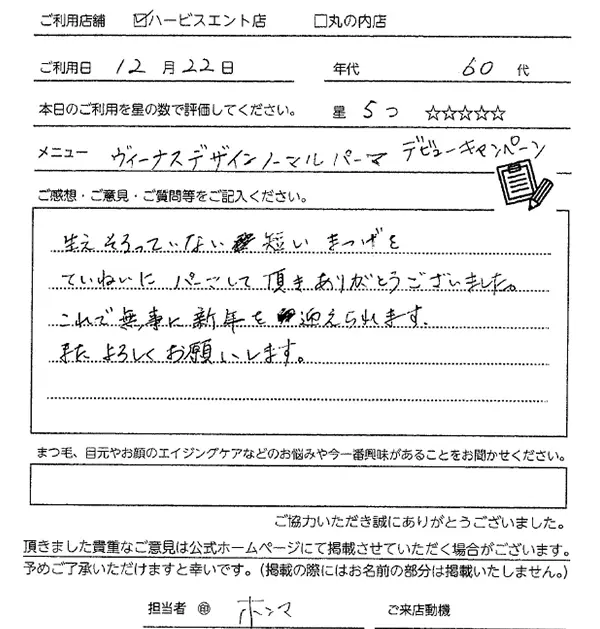 ご利用店舗 ☑ハービスエント店 □丸の内店
ご利用日 12 月 22 日 年代 60 代
本日のご利用を星の数で評価してください。 星 5つ ☆☆☆☆☆
メニュー ヴィーナスデザインノーマルパーマ デビューキャンペーン
ご感想・ご意見・ご質問等をご記入ください。
生えそろっていない 短い まつげを
ていねいに パーマして頂きありがとうございました。
これで無事に新年を 迎えられます。
また よろしくお願いします。
まつ毛、目元やお顔のエイジングケアなどのお悩みや今一番興味があることをお聞かせください。
ご協力いただき誠にありがとうございました。
頂きました貴重なご意見は公式ホームページにて掲載させていただく場合がございます。
予めご了承いただけますと幸いです。（掲載の際にはお名前の部分は掲載いたしません。）
担当者 ㊞ ホンマ ご来店動機